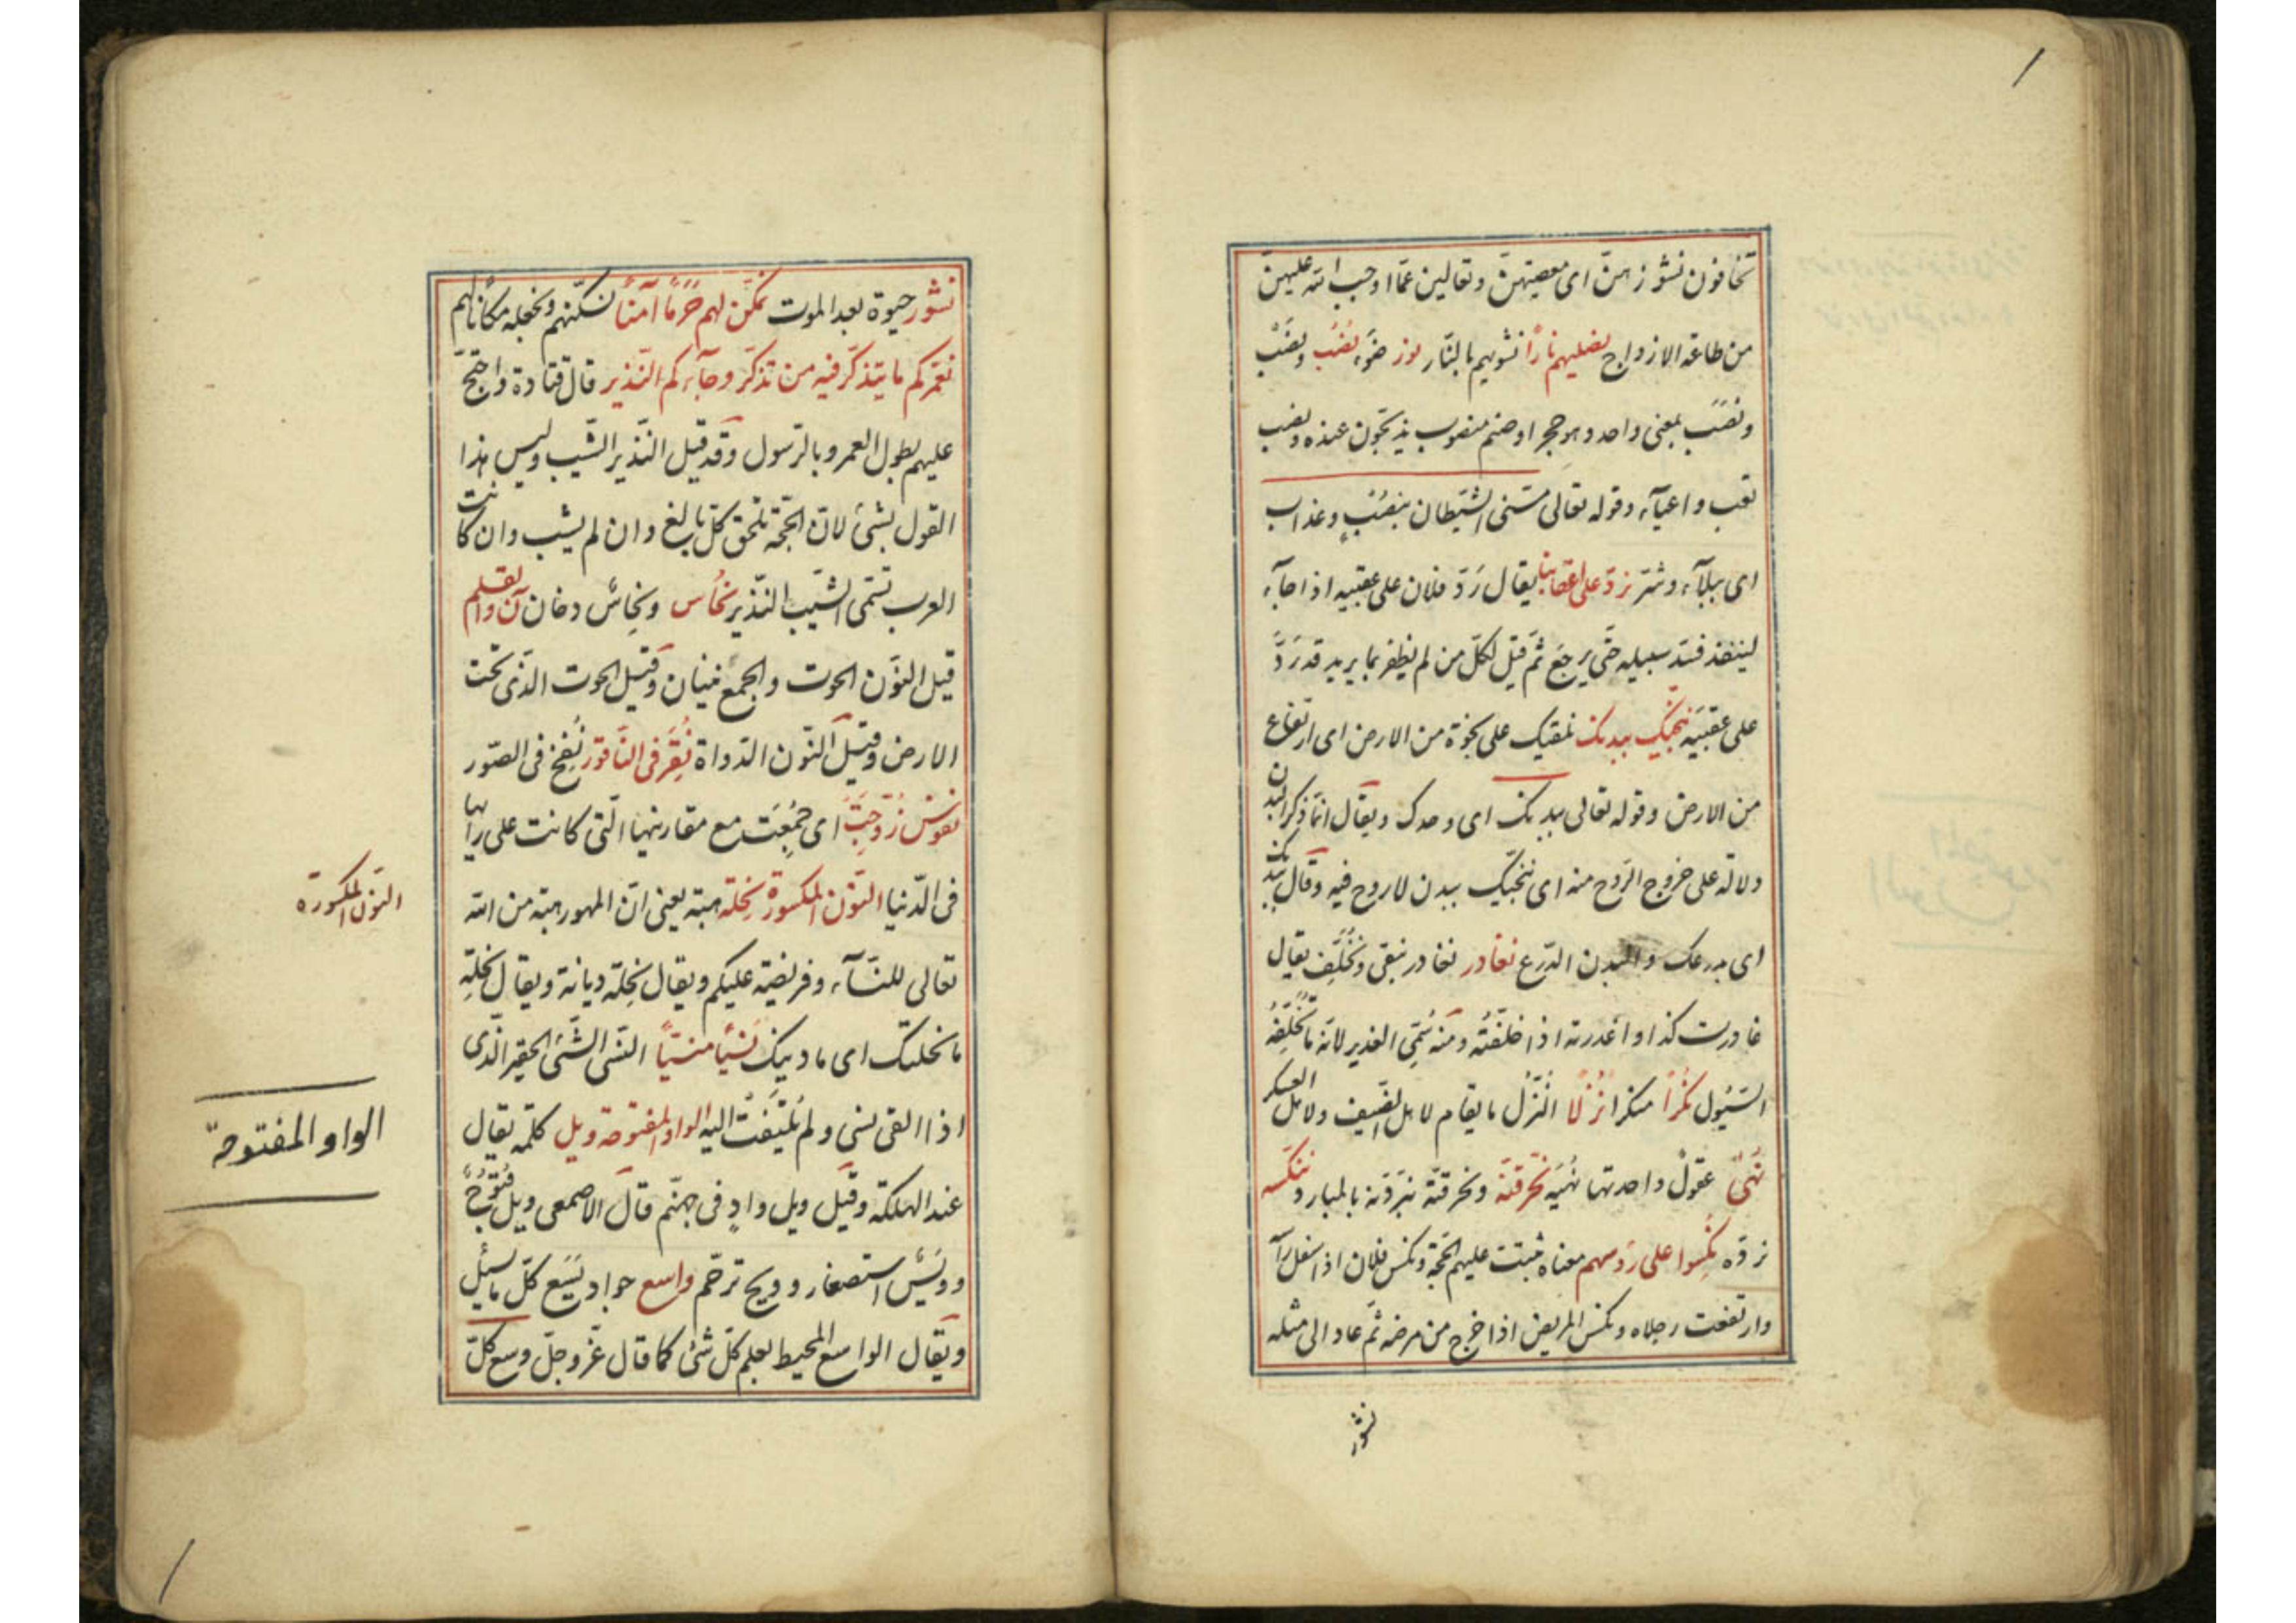 تخافون نشوزهنّ اى معصيتهنّ وتعالين عمّا اوجب اللّه عليهنّ
من طاعة الازواج نصليهم نارًا نشويهم بالنّار نور ضوء نُصُب ونَصْب
ونُصْب بمعنى واحد وهو حجر او صنم منصوب يذبحون عنده ونصب
تعب واعياء وقوله تعالى مسّنى الشّيطان بنُصْبٍ وعذاب
اى ببلاء وشرّ نردّ على اعقابنا يقال رَدّ فلان على عقبيه اذا جاء
لينفذ فسدّ سبيله حتّى يرجع ثمّ قيل لكلّ من لم يظفر بما يريد قد رَدَّ
على عقبيَه ننجّيك ببدنك نلقيك على نجوة من الارض اى ارتفاع
من الارض وقوله تعالى ببدنك اى وحدك ويقال انّما ذكر البدن
دلالة على خروج الرّوح منه اى ننجّيك ببدن لا روح فيه وقال ببدنك
اى بدرعك والبدن الدّرع نغادر نغادر نبقى ونُخلِّف يقال
غادرت كذا واغدرته اذا خلّفتُه ومنه سُمّى الغدير لانّه ما تُخلّفه
السّيُول نُكُراً منكرا نُزُلًا النُّزُل ما يقام لاهل الضّيف ولاهل العسكر
نُهىً عقول واحدتها نُهيَه نحرقنّه ونحرقنّه نبردنّه بالمبارد ننكّسه
نردّه نُكِسوا على رؤسهم معناه ثبتت عليهم الحجّة ونكس فلان اذا سفل رآ
وارتفعت رجلاه ونكس المريض اذا خرج من مرضه ثمّ عاد الى مثله
نشور
نشور حيوة بعد الموت نمكّن لهم حَرَمًا آمنًا نسكّنهم ونجعله مكانا لهم
نعمّركم ما يتذكّر فيه من تذكّر وجاءكم النّذير قال قتادة واحتجّ
عليهم بطول العمر وبالرّسول وقد قيل النّذير الشّيب وليس هذا
القول بشئ لانّ الحجّة تلحق كلّ بالغ وان لم يشب وان كانت
العرب تسمّى الشّيب النّذير نُحَاس ونِحاسٌ دخان ن والقلم
قيل النّون الحوت والجمع نينان وقيل الحوت الّذى تحت
الارض وقيل النّون الدّواة نُقِرَ فى النّاقور نُفِخ فى الصّور
نفوس زُوّجَت اى جُمِعَت مع مقارنيها الّتى كانت على رايها
فى الدّنيا النّون المكسورة نِحلة هبة يعنى انّ المهور هبة من اللّه
تعالى للنّسآء وفريضة عليكم ويقال نِحلة ديانة ويقال نِحلةِ
ما نحلتك اى ما دينك نَسْيًا منسيّاً النّسى الشّئ الحقير الّذى
اذا القى نسى ولم يُلتَفت اليه الواو المفتوحة ويل كلمة يقال
عند الهلكة وقيل ويل وادٍ فى جهنّم قال الاصمعى ويل قُبُوحٌ
وويسٌ استصغار وويح ترحّم واسع جواد يَسَع كلّ ما سئل
ويقال الواسع المحيط بعلم كلّ شئ كما قال عزّ وجلّ وسع كلّ
النّون المكسورة
الواو المفتوحة